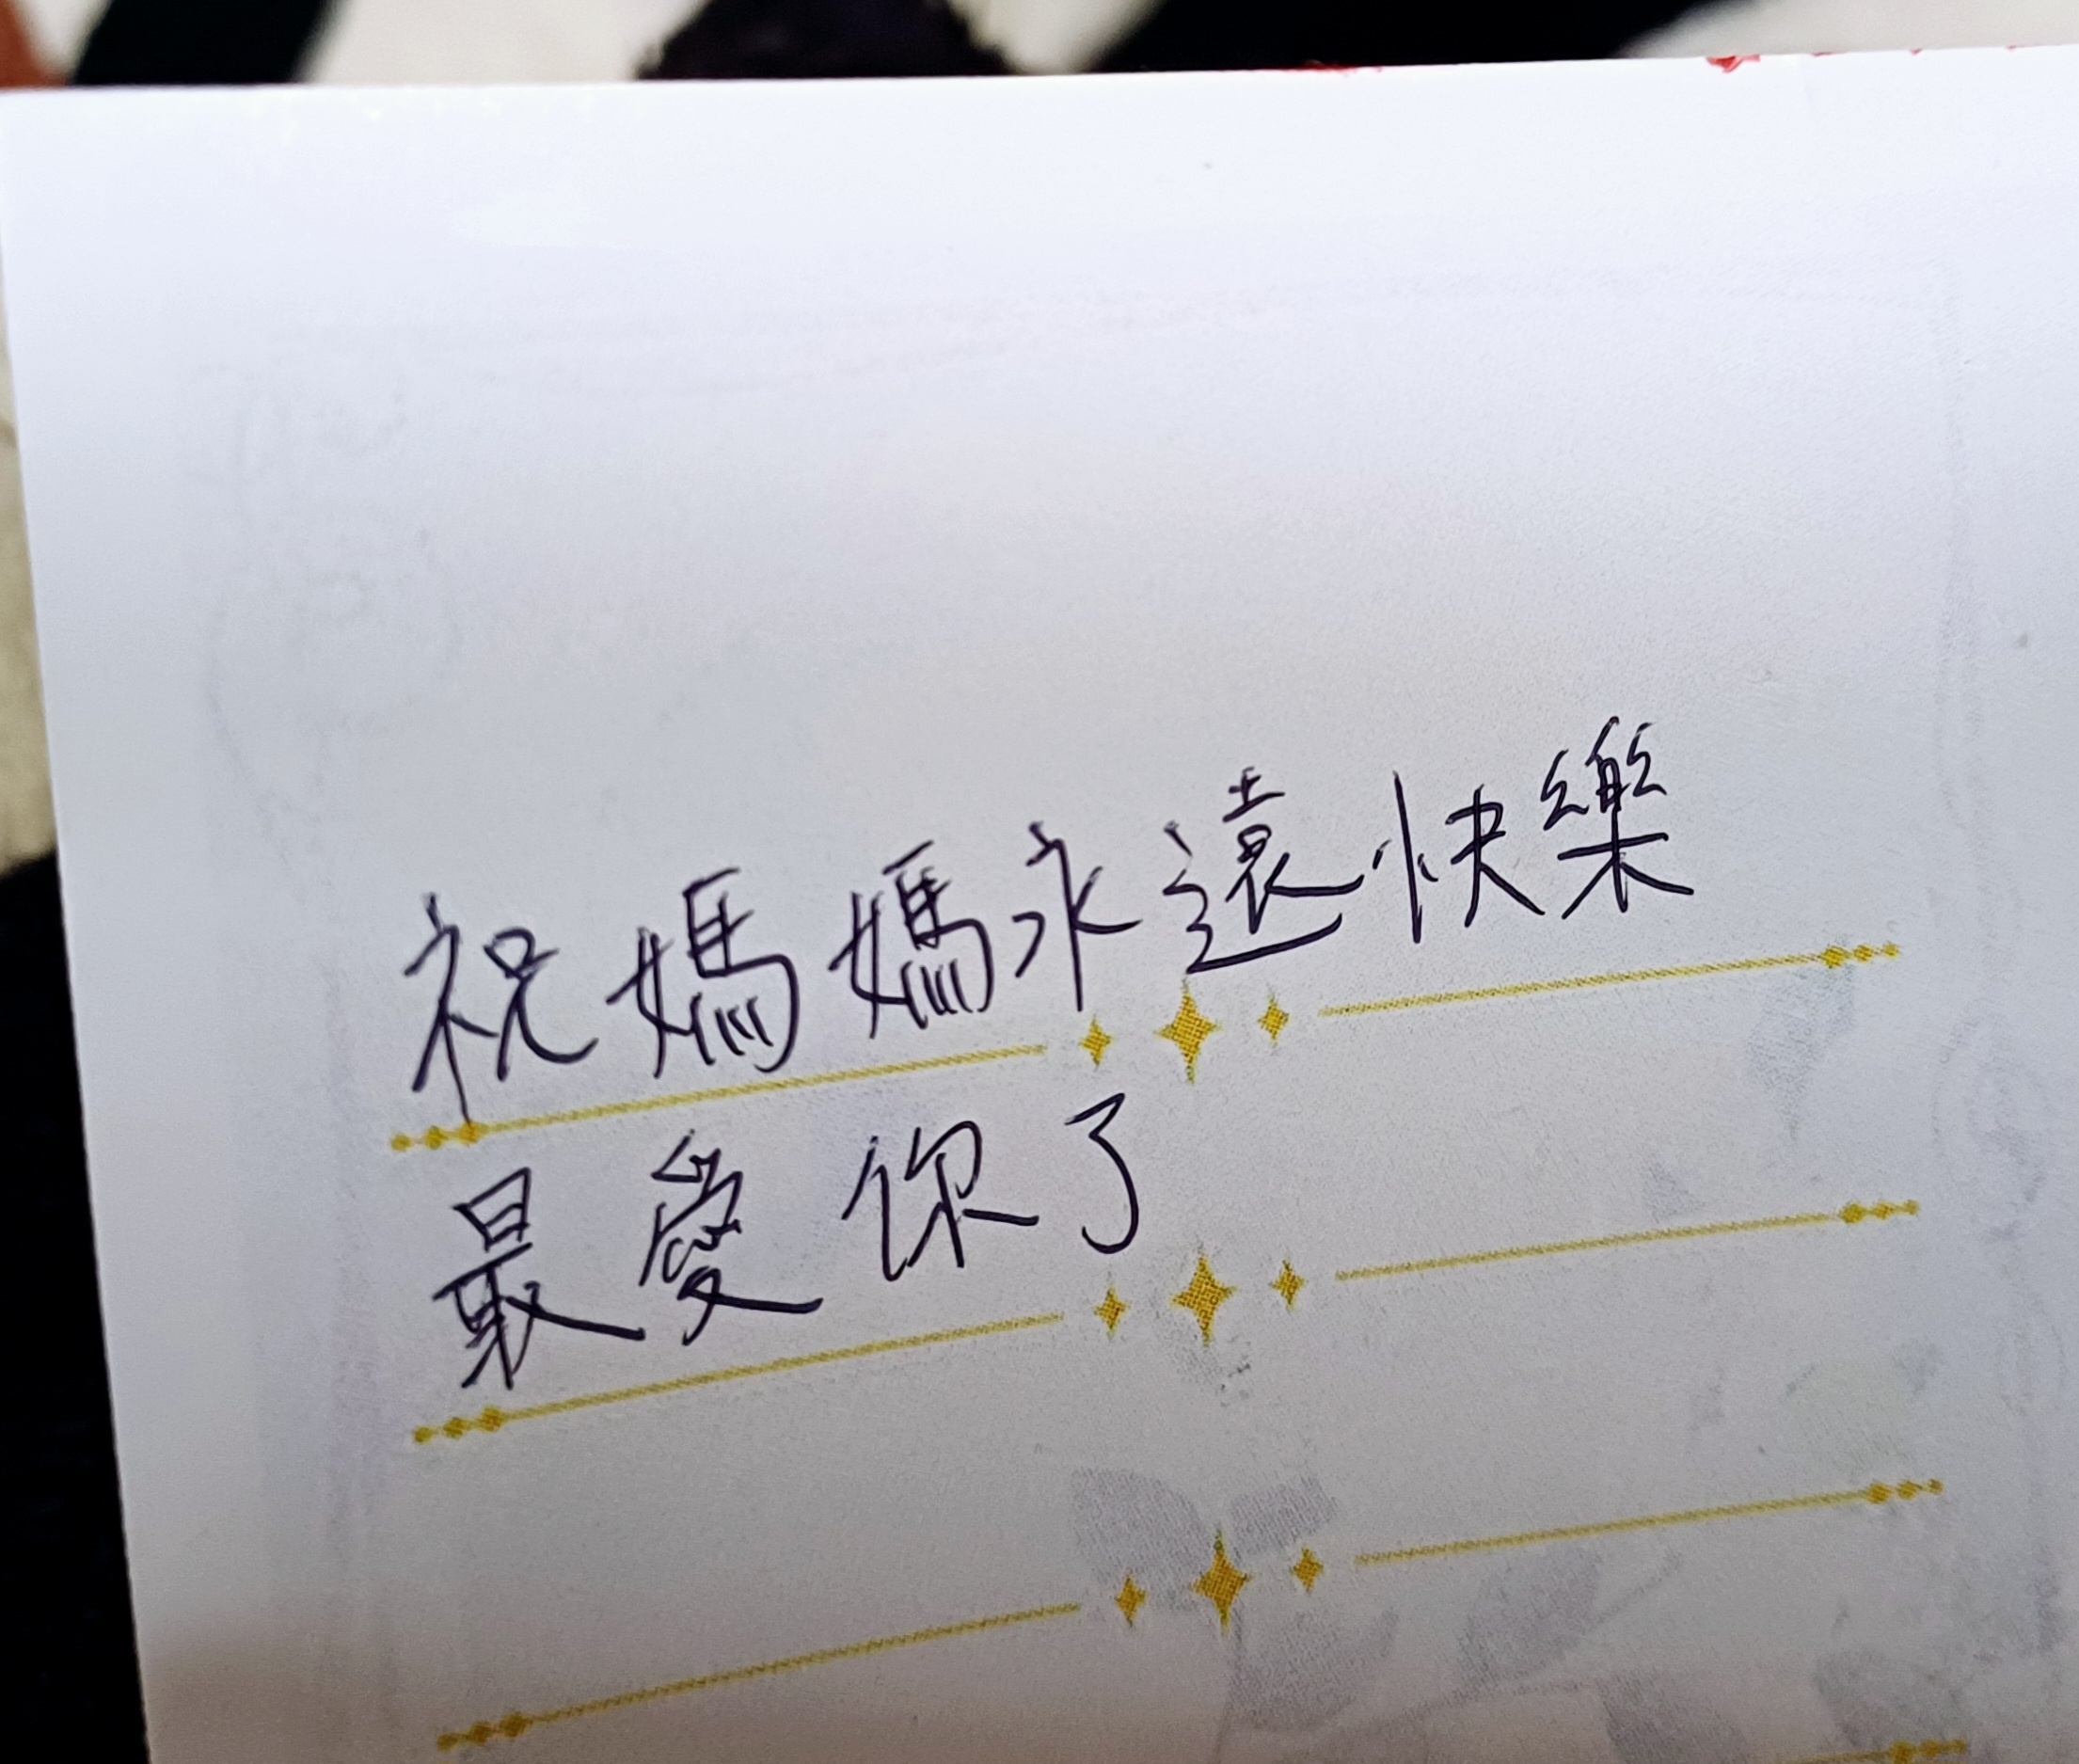 祝媽媽永遠快樂
最愛你了